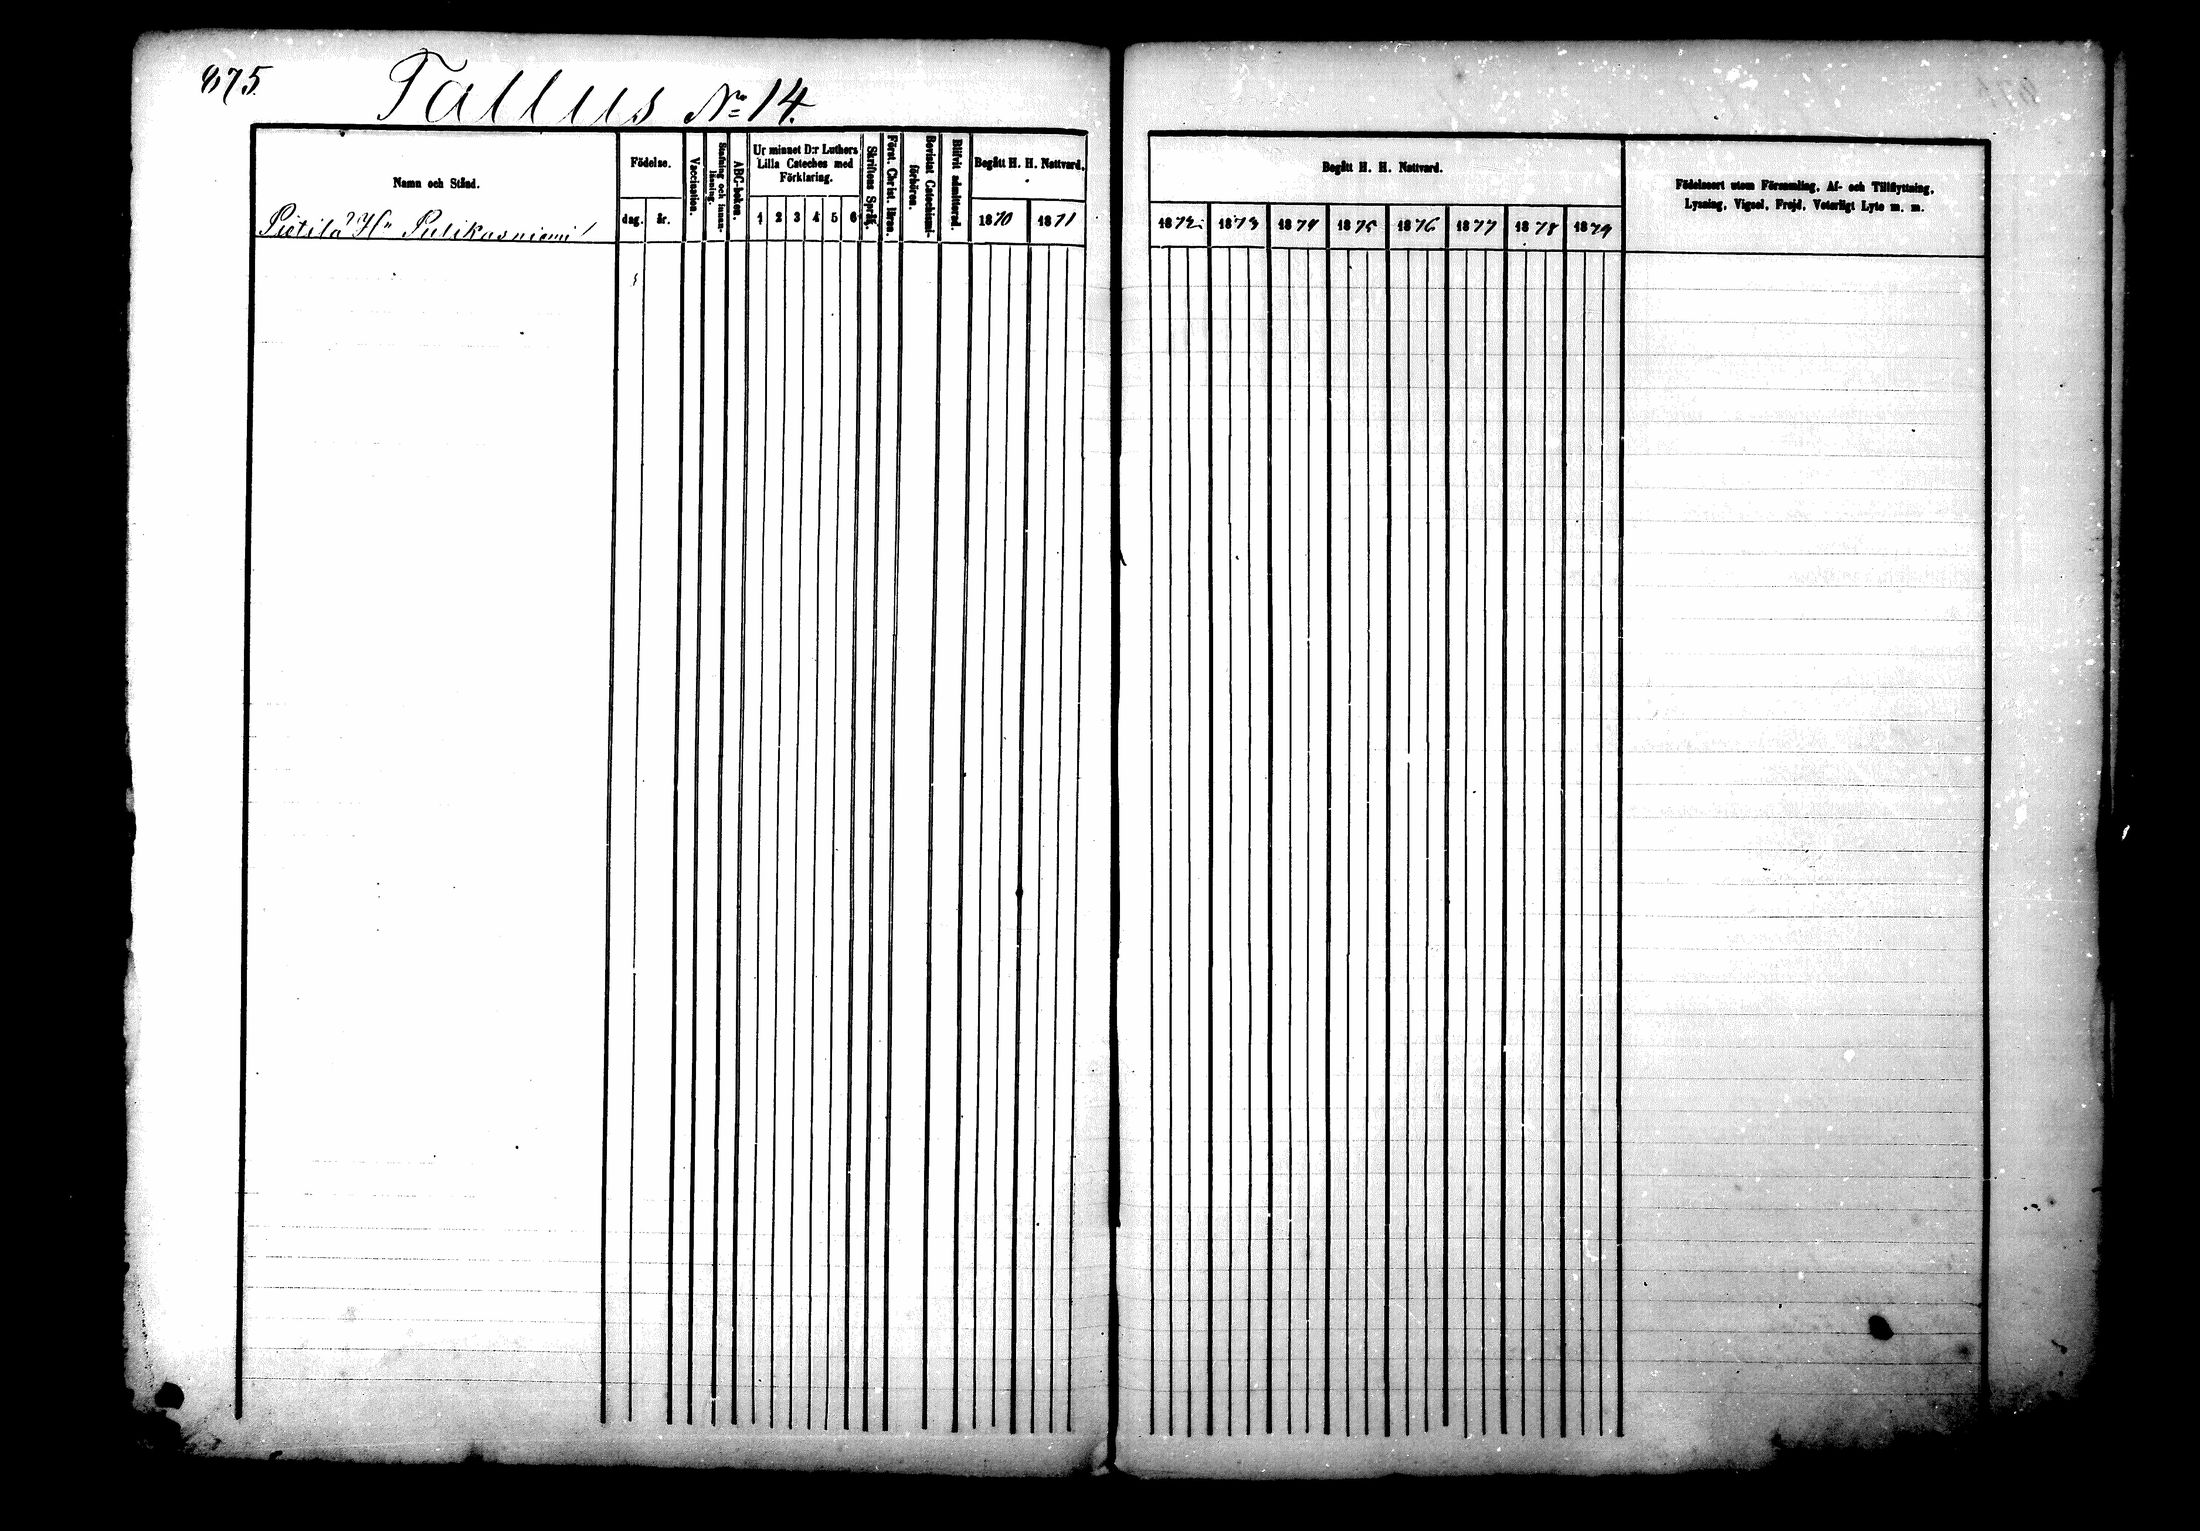 875.
Tallus No 14.
Namn och Stånd.
Födelse.
dag.
år.
Vaccination.
Stafning och innan-
läsning.
ABC-boken.
Ur minnet D:r Luthers
Lilla Cateches med
Förklaring.
1 2 3 4 5 6
Skriftens Språk.
Först. Christ. läran.
Bevistat Catechismi-
förhören.
Blifvit admitterad.
Begått H. H. Nattvard.
1870
1871
Pietilä Hn Pulikasniemi
Begått H. H. Nattvard.
1872 1873 1874 1875 1876 1877 1878 1879
Födelseort utom Församling, Af- och Tillflyttning,
Lysning, Vigsel, Frejd, Veterligt Lyte m. m.